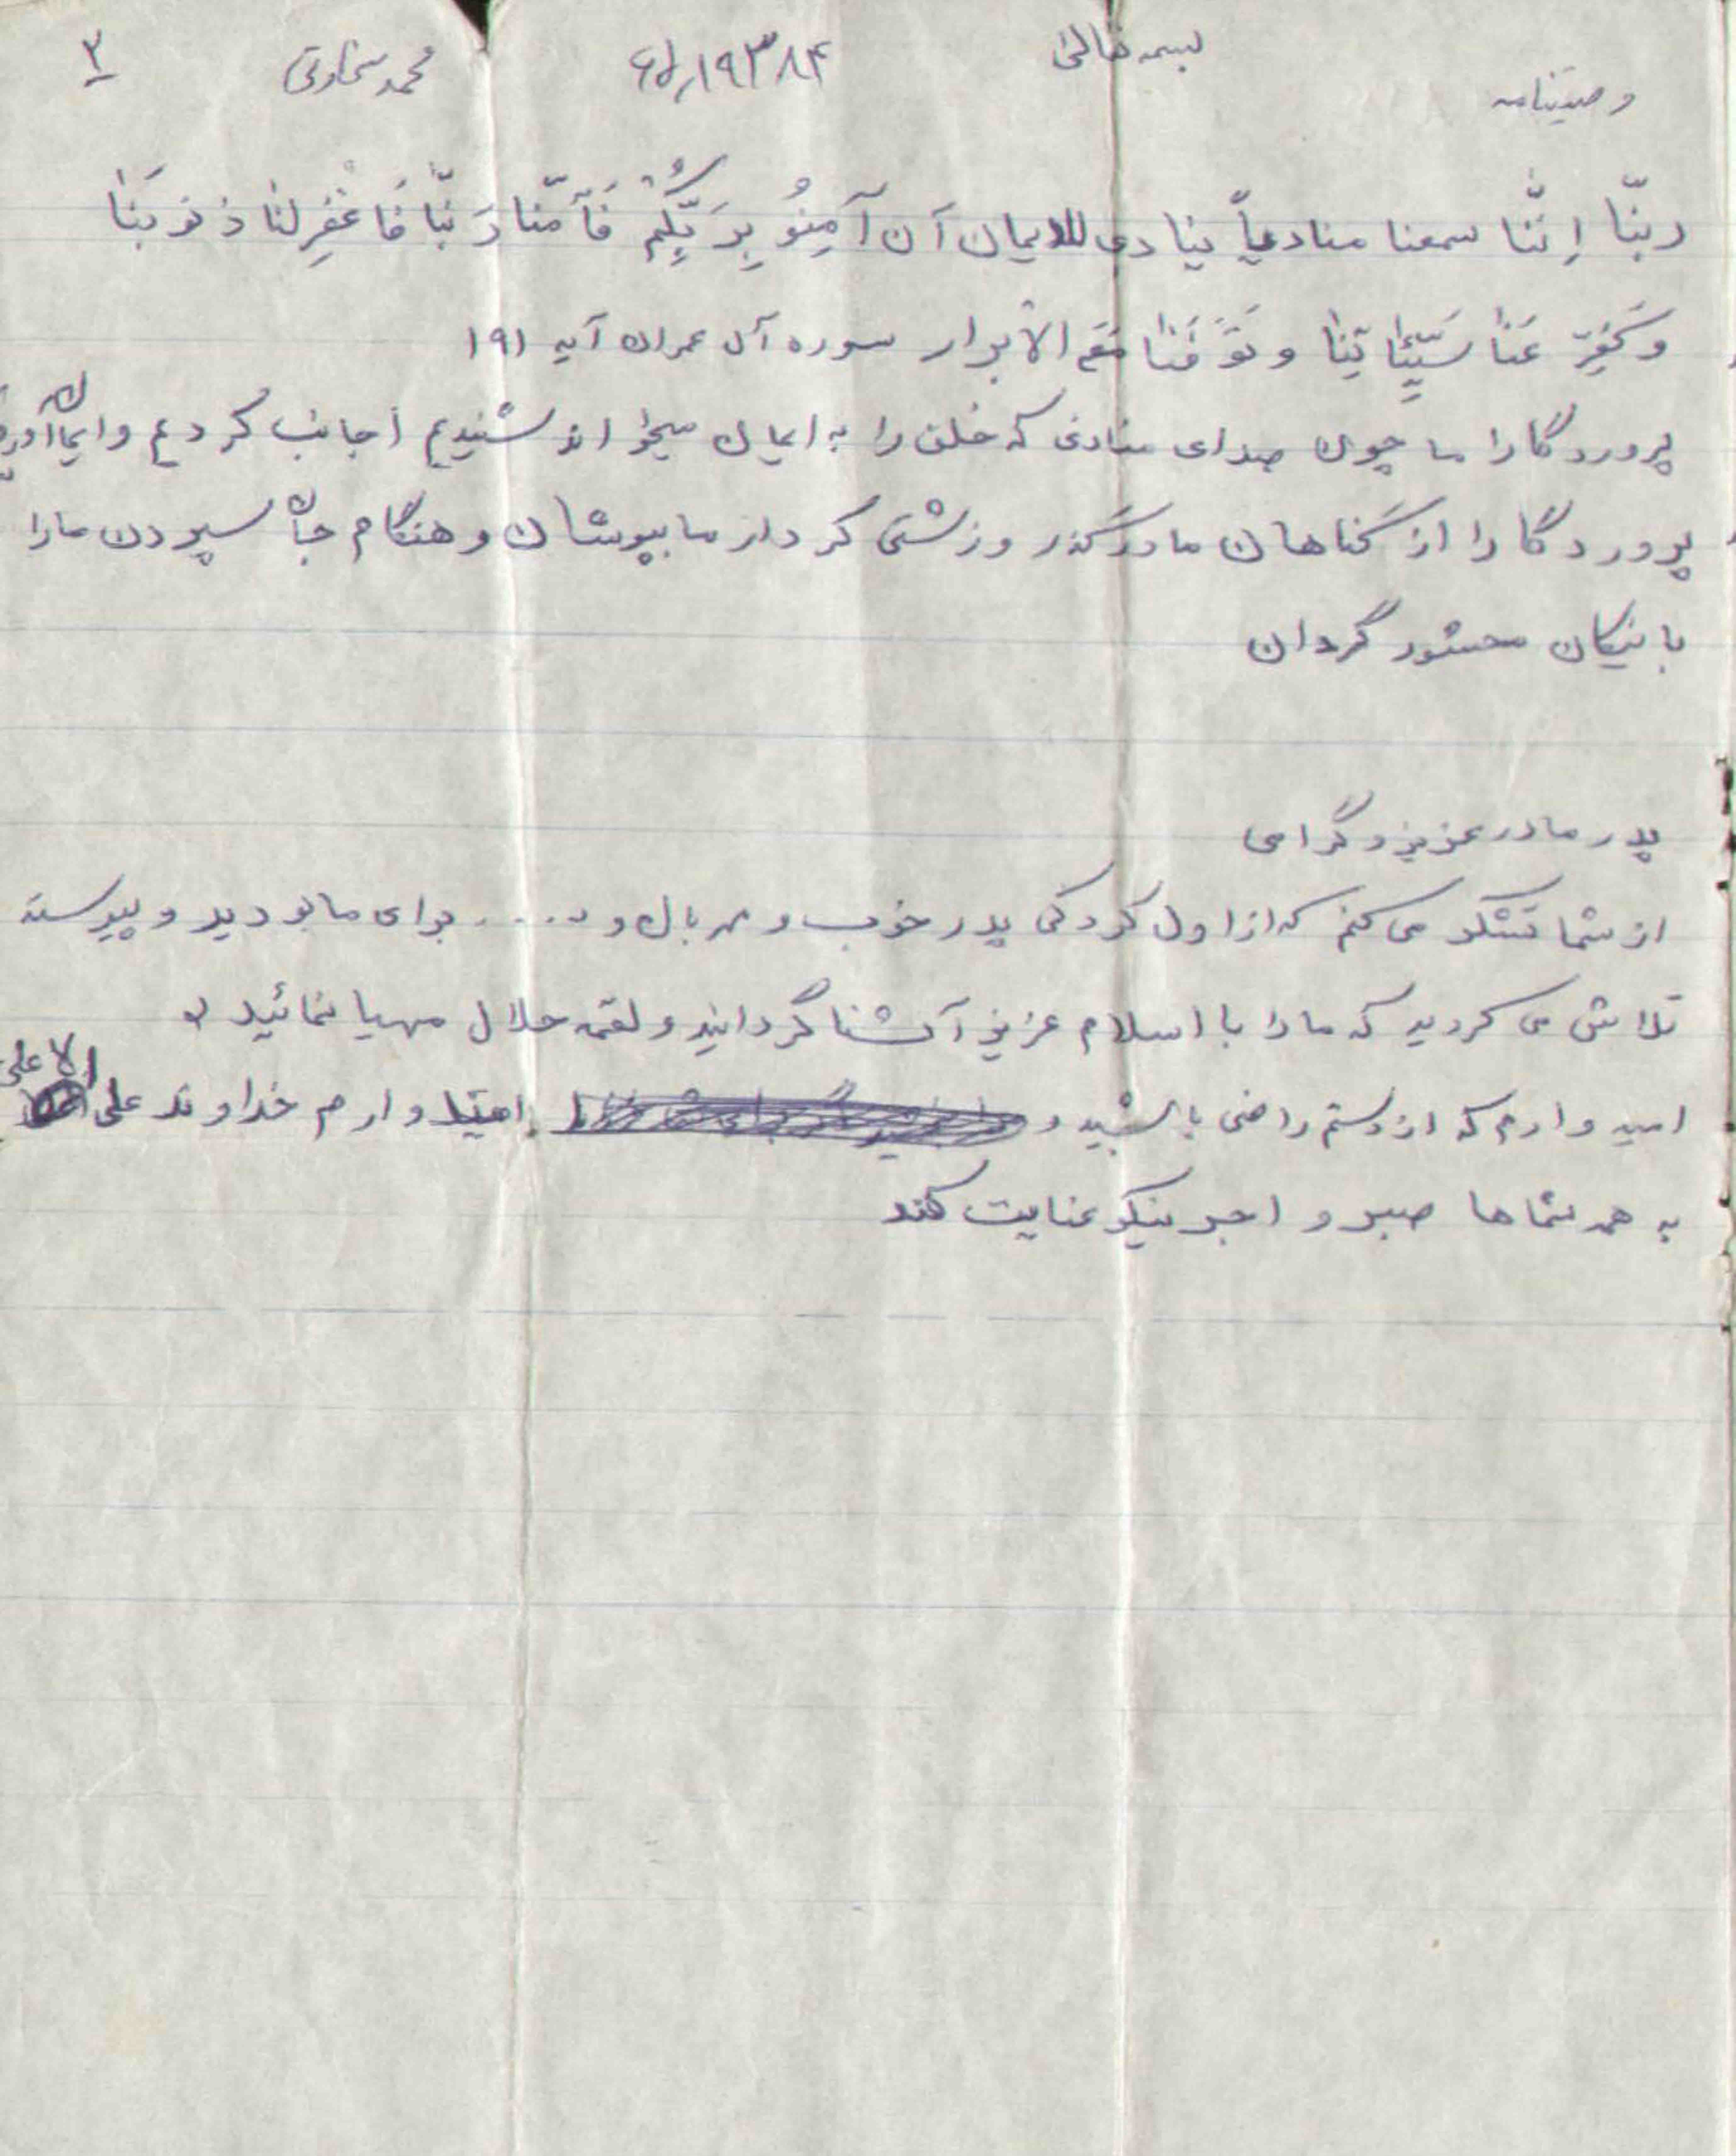 بسمه تعالی
وصیتنامه
۶۵٫۱۹۳۸۴
محمد سخاوتی
۳
ربنّا إنَّنا سمعنا منادیاً ینادی للایمان آن آمِنُو بِرَبِّکُمْ فَآمَنّا رَبَّنا فَاغْفِرلنا ذنوبَنا
وَکَفِرّ عَنّا سَیِّئاتِنا و تَوَفَّنا مَعَ الابرار سوره آل عمران آیه ۱۹۱
پروردگارا ما چون صدای منادی که خلق را به ایمان میخواند شنیدیم اجابت کردیم و ایمان آوردیم
پروردگارا از گناهان ما درگذر و زشتی کردار ما بپوشان و هنگام جان سپردن ما را
با نیکان محشور گردان
پدر مادر عزیز و گرامی
از شما تشکر می کنم که از اول کودکی پدر خوب و مهربان و .... برای ما بودید و پیوسته
تلاش می کردید که ما را با اسلام عزیز آشنا گردانید و لقمه حلال مهیا نمائید
امید وارم که از دستم راضی باشید و امید وارم خداوند علی الاعلی
به همه شماها صبر و اجر نیکو عنایت کند